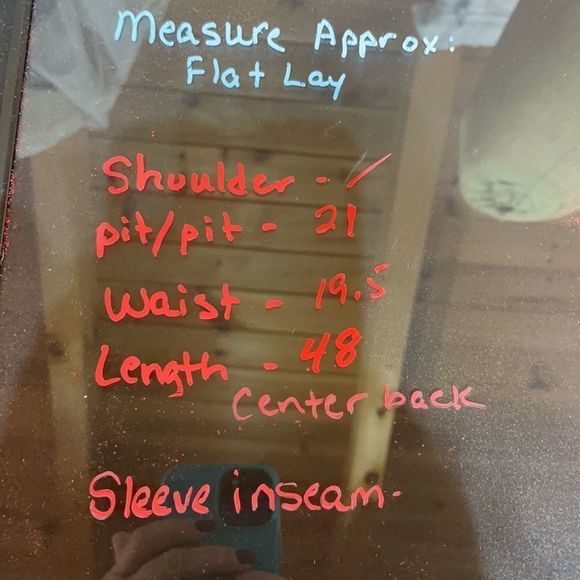 Measure Approx:
Flat Lay
Shoulder - /
pit/pit - 21
Waist - 19.5
Length - 48
Center back
Sleeve inseam-